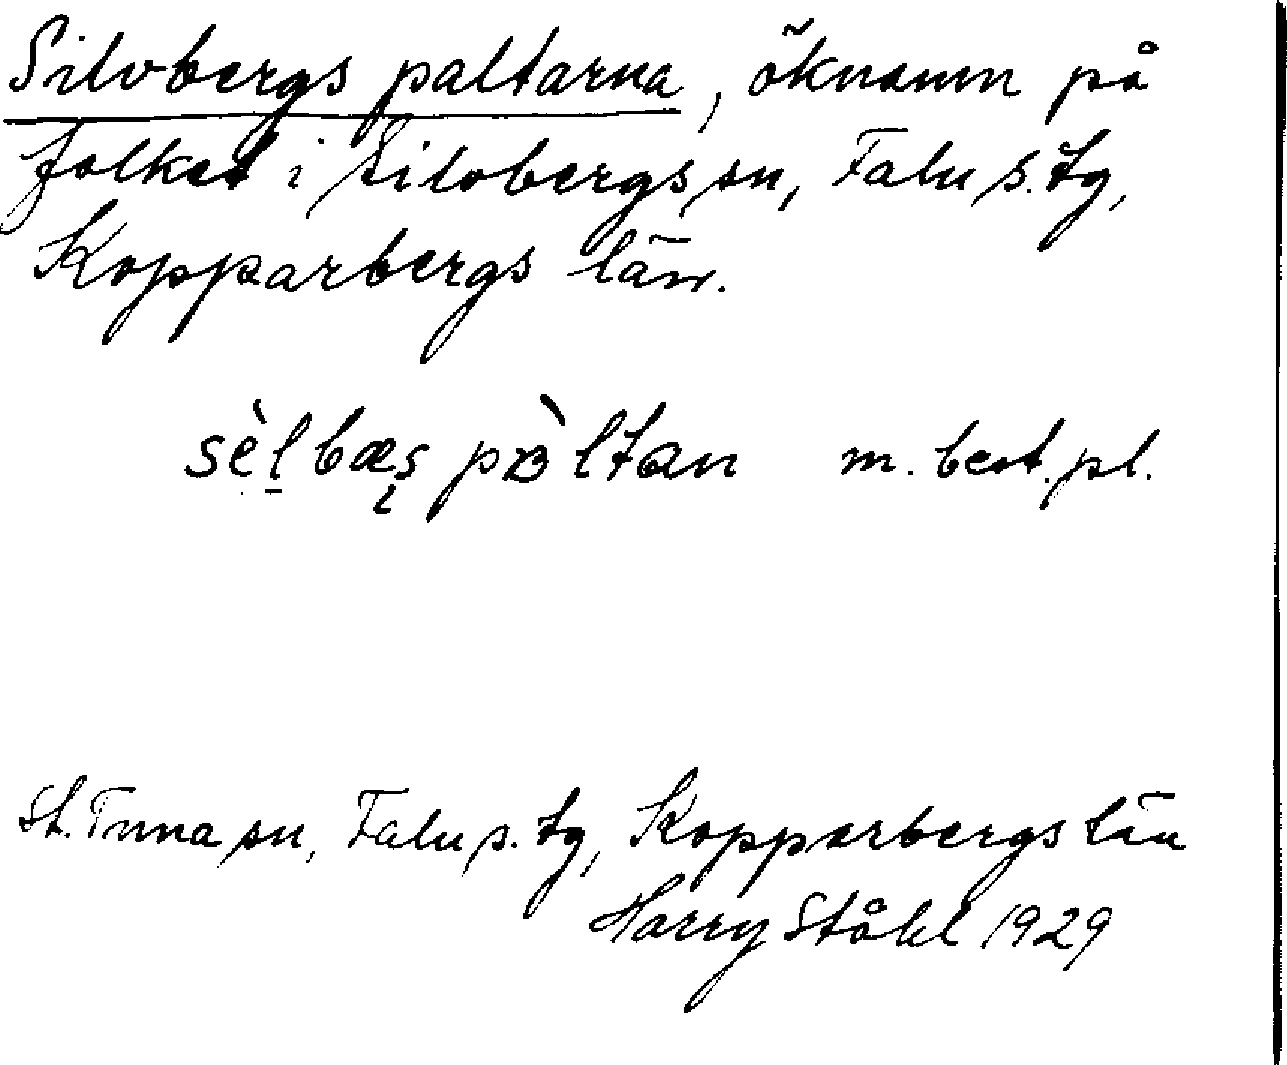 Silvbergs paltarna, öknamn på
folket i Silvbergs sn, Falu s. tg,
Kopparbergs län.
sèl̠bæs pàltan m. best. pl.
St. Tuna sn, Falu s. tg, Kopparbergs län
Harry Ståhl 1929